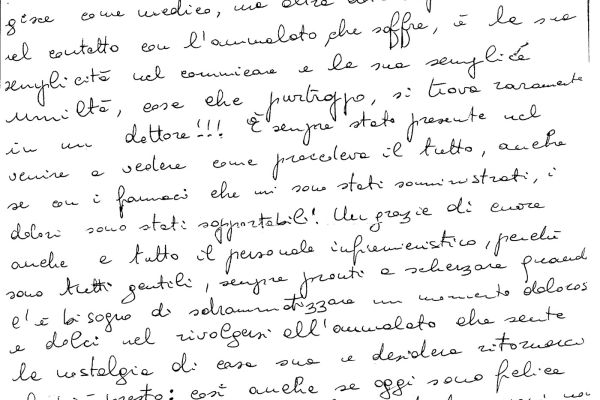 gisce come medico, ma
nel contatto con l'ammalato, che soffre, è la sua
semplicità nel comunicare e la sua semplice
umiltà, cose che purtroppo, si trova raramente
in un dottore!!! È sempre stato presente nel
venire a vedere come procedeva il tutto, anche
se con i farmaci che mi sono stati somministrati, i
dolori sono stati sopportabili! Un grazie di cuore
anche a tutto il personale infiermieristico, perchè
sono tutti gentili, sempre pronti a scherzare quand
c'è bisogno di sdrammatizzare un momento doloros
e dolci nel rivolgersi all'ammalato che sente
la nostalgia di casa sua e desidera ritornarci
presto: così anche se oggi sono felice